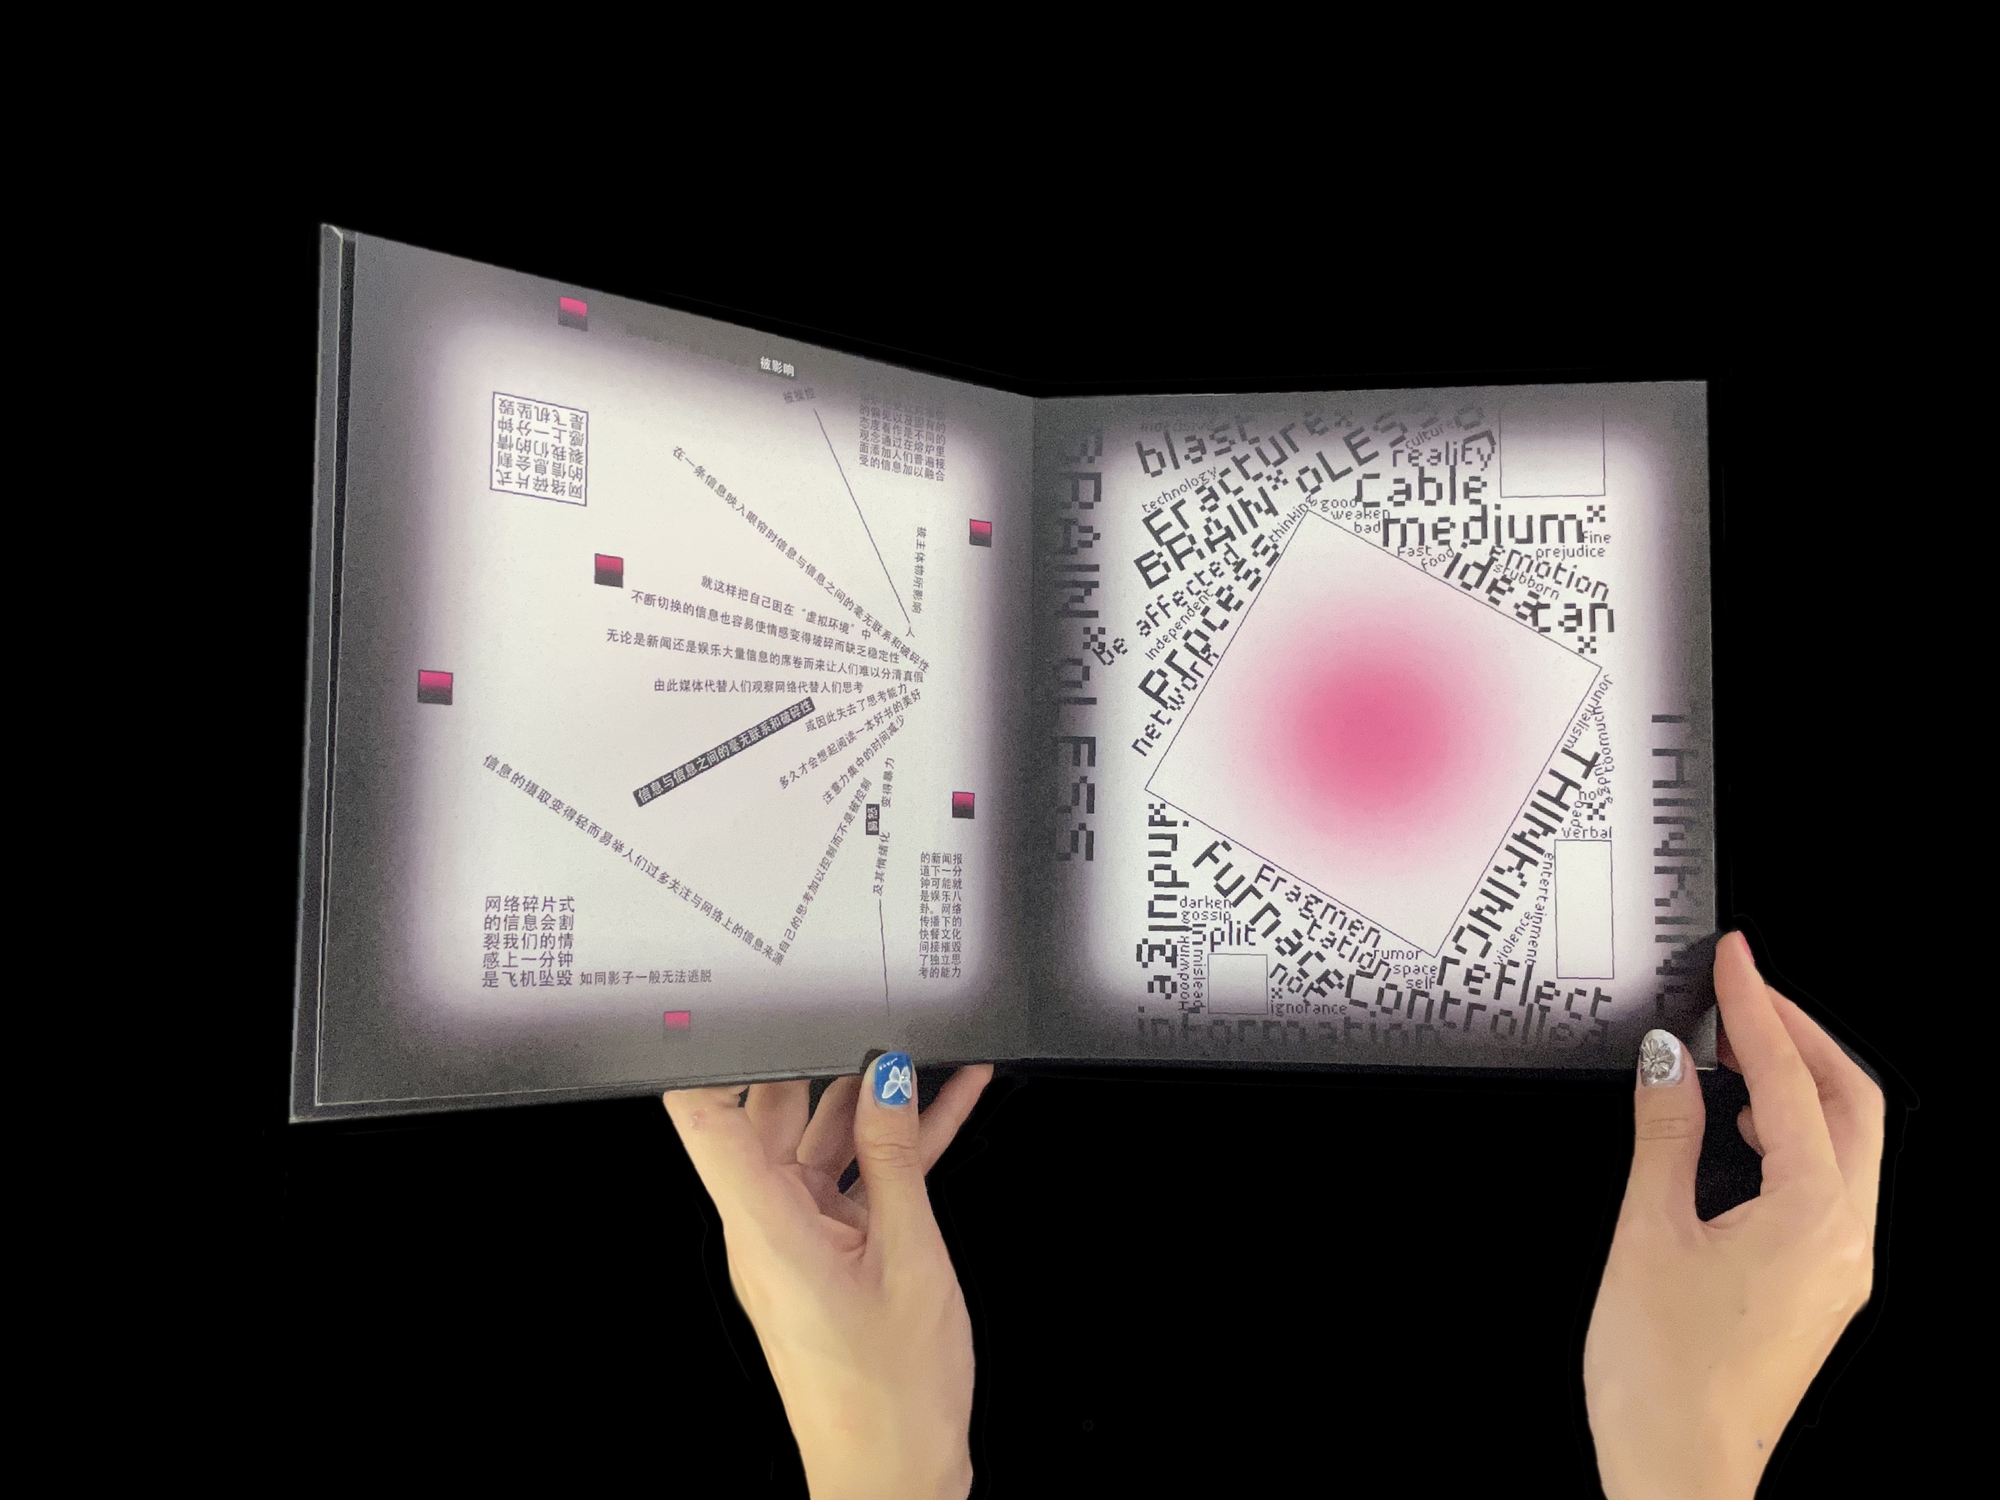 被影响
被操控
是飞机坠毁
感上一分钟
裂我们的情
的信息会割
网络碎片式
在一条信息映入眼帘时信息与信息之间的毫无联系和破碎性
被主体物所影响
人
就这样把自己困在“虚拟环境”中
不断切换的信息也容易使情感变得破碎而缺乏稳定性
无论是新闻还是娱乐大量信息的席卷而来让人们难以分清真假
由此媒体代替人们观察网络代替人们思考
信息与信息之间的毫无联系和破碎性
或因此失去了思考能力
多久才会想起阅读一本好书的美好
注意力集中的时间减少
变得暴力
及其情绪化
自己的思考加以控制而不是被控制
信息的摄取变得轻而易举人们过多关注与网络上的信息来源
的新闻报
道下一分
钟可能就
是娱乐八
卦。网络
传播下的
快餐文化
间接摧毁
了独立思
考的能力
网络碎片式
的信息会割
裂我们的情
感上一分钟
是飞机坠毁
如同影子一般无法逃脱
BRAIN*OLESS
blast
Fracture*
technology
BRAIN*OLESS
culture
reality
Cable
good
weaken
bad
medium*
Fine
prejudice
thinking
Fast
food
emotion
idea
stubborn
can
Be affected
Independent
Process
Network
Journalism
THINKING
no
Verbal
entertainment
Input
Furnace
Fragmen
tation
darken
gossip
split
mislead
Hoodwink
rumor
space
self
not
ignorance
Reflect
Controlled
information
THINKING